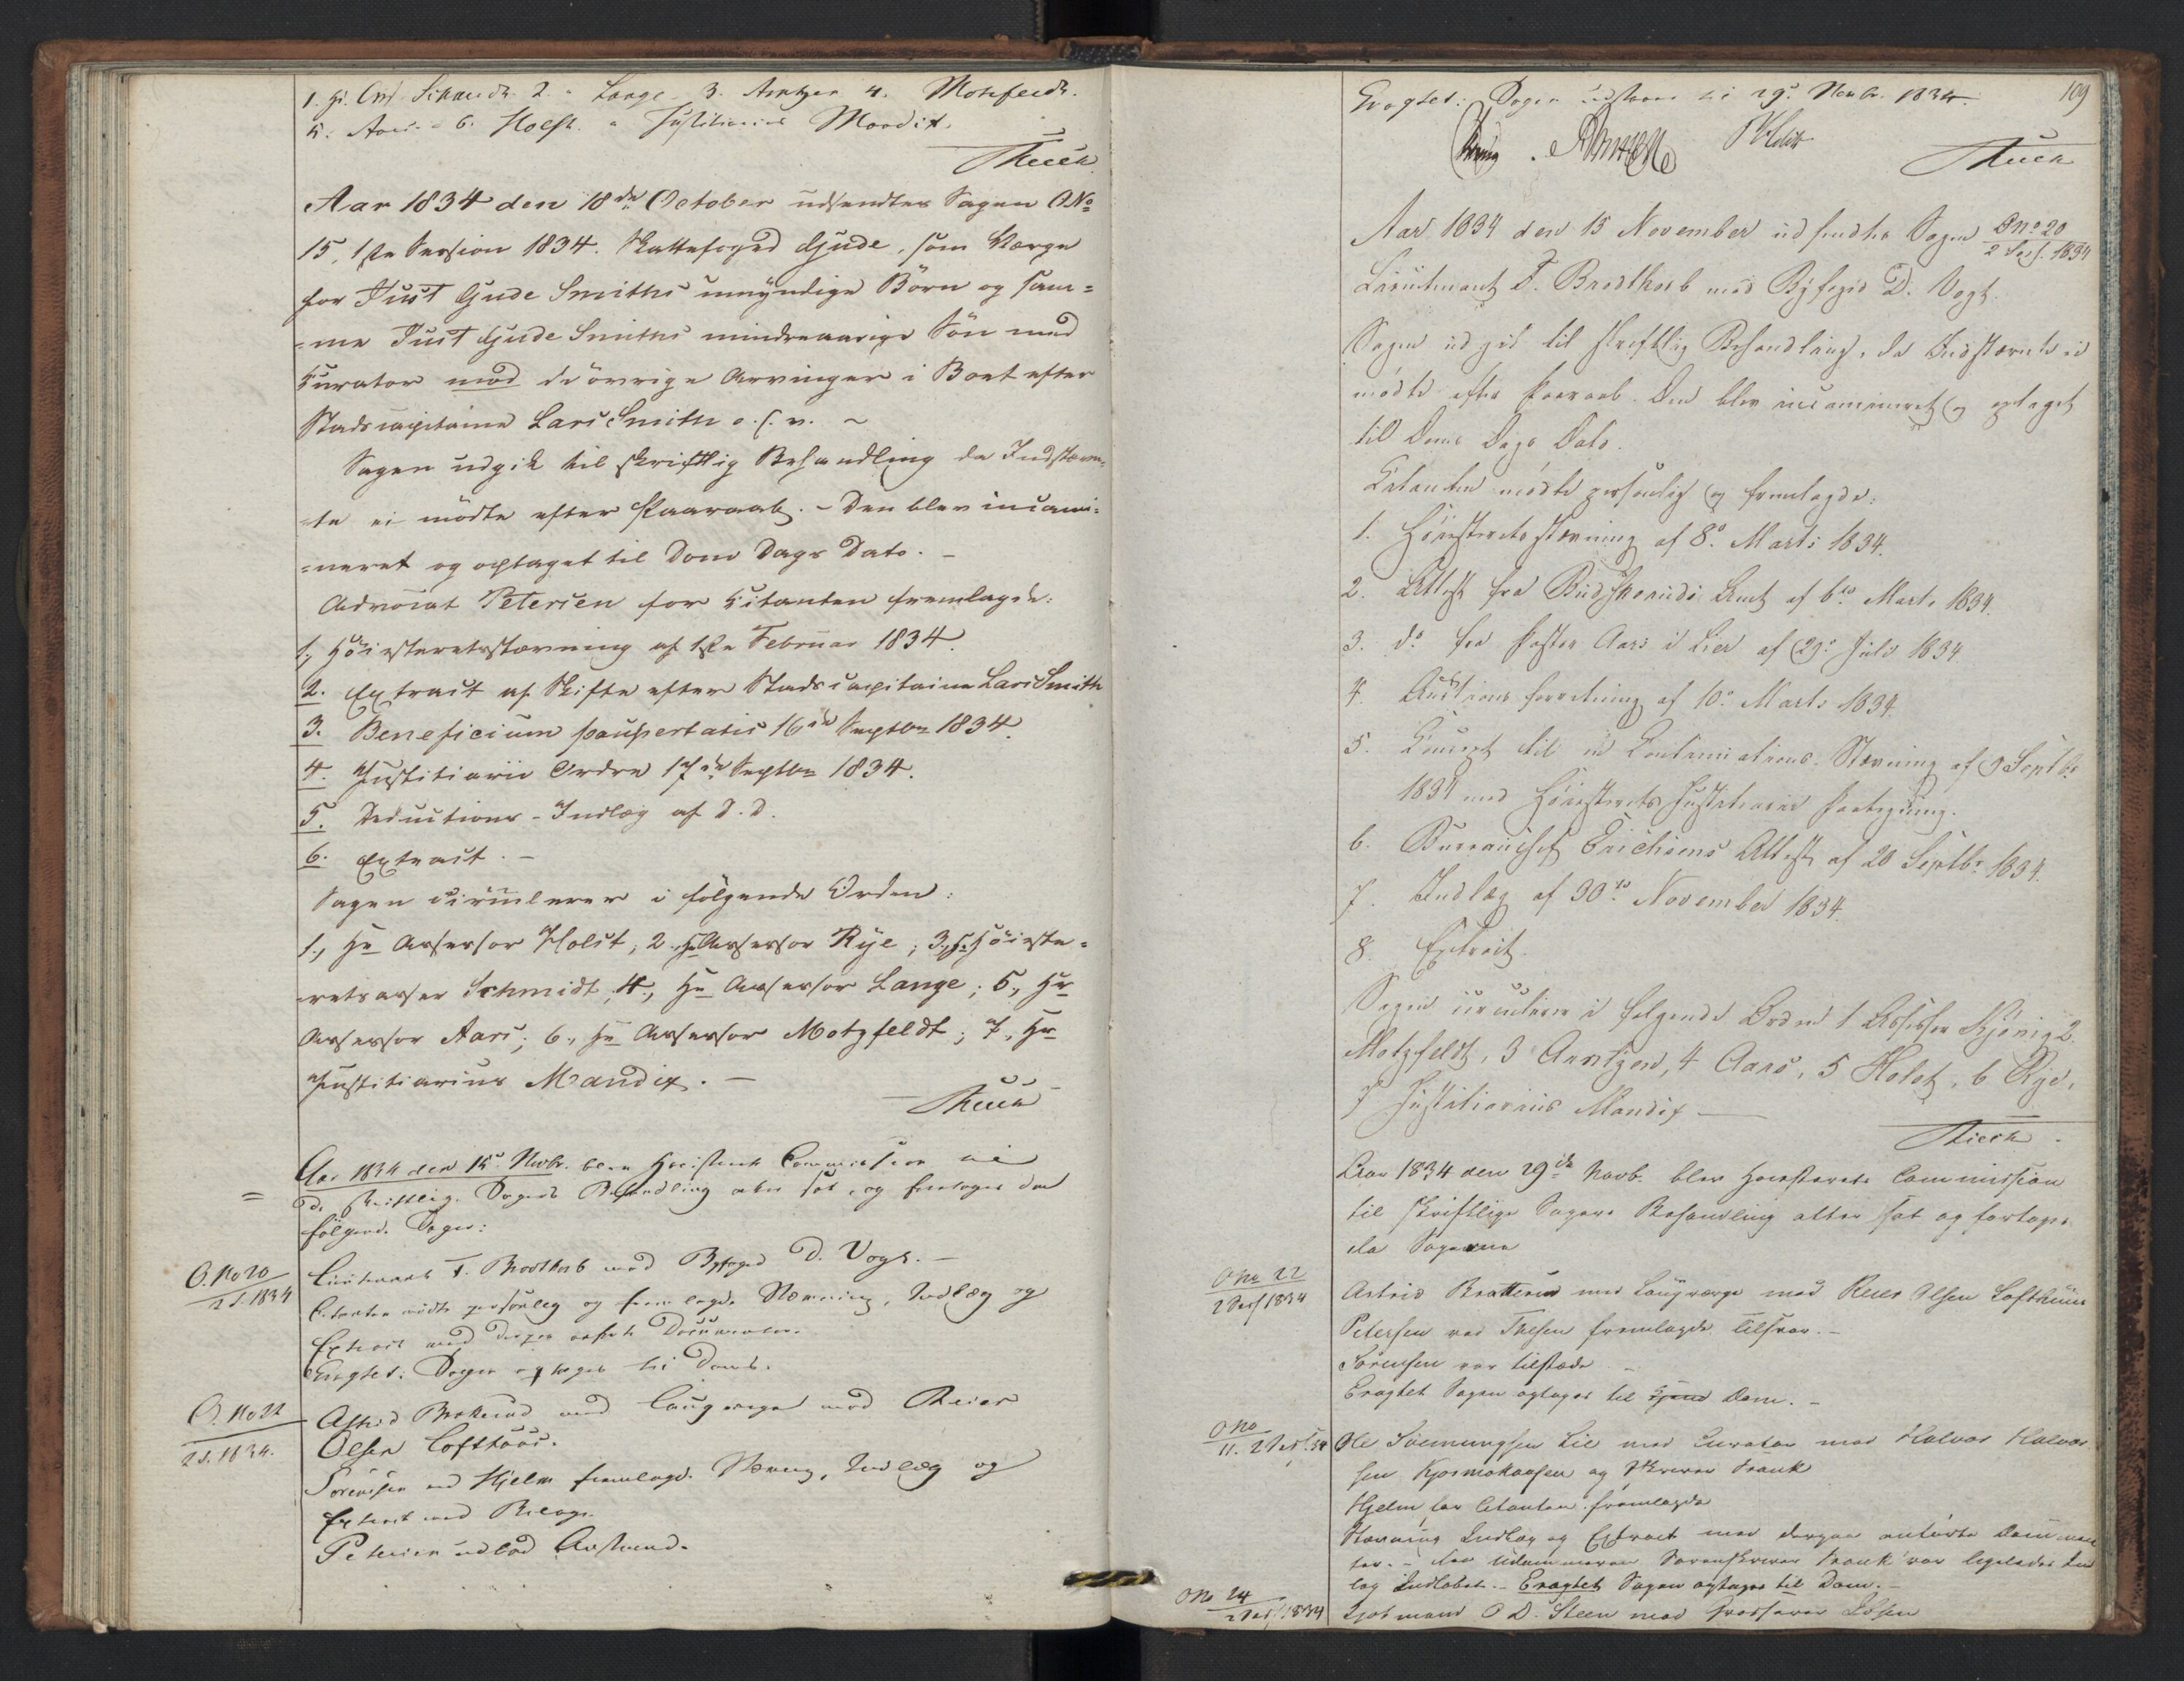 1. Hr. Ass. Schmidt 2. " Lange 3. Arntzen 4. Motzfeldt.
5. Aars - 6. Holst. " Justitiarius Mandix.
Aar 1834 den 18de October udsendtes Sagen O No
15, 1ste Session 1834. Skattefoged Gjude, som Værge
for Just Gude Smiths umyndige Börn og sam=
=me Just Gjude Smiths mindreaarige Sön med
Curator mod de övrige Arvinger i Boet efter
Stadscapitaine Lars Smith o. s. v. ~
Sagen udgik til skriftlig Behandling da Indstævn=
=te ei mödte efter Paaraab. - Den blev incami=
=neret og optaget til Dom Dags Dato. -
Advocat Petersen for Citanten fremlagde:
1, Höiesteretsstævning af 1ste Februar 1834.
2. Extract af Skifte efter Stadscapitaine Lars Smith
3. Beneficium paupertatis 16de Septbr 1834.
4. Justitiarii Ordre 17de Septbr 1834.
5. Deductions-Indlæg af D. D.
6. Extract. -
Sagen circulerer i fölgende Orden:
1, Hr Assessor Holst, 2, Hr Assessor Rye; 3, Hr Höieste=
=retsasser Schmidt, 4, Hr Assessor Lange; 5, Hr
Assessor Aars; 6, Hr Assessor Motzfeldt; 7, Hr
Justitiarius Mandix. -
Aar 1834 den 15de Novbr. blev Höiesterets Commission til
de skriftlige Sagers Behandling atter sat, og foretoges da
fölgende Sager:
O. No 20
2 S. 1834
Lieutenant F. Brodtkorb mod Byfoged D. Vogt. -
Citanten mödte personlig og fremlagde Stævning, Indlæg og
Extract med derpaa anförte Documenter.
Eragtet: Sagen optages til Doms.
O. No 22
2 S. 1834.
Astrid Bratterud med Laugværge mod Reier
Olsen Lofthuus.
Sörensen ved Hjelm fremlagde Stævning, Indlæg og
Extract med Bilage.
Petersen udbad Anstand.
109
Eragtet: Sagen udstaaer til 29de Novbr. 1834.
Aar 1834 den 15 November udsendtes Sagen O No 20
2 Sess. 1834
Lieutenant F. Brodtkorb mod Byfoged D. Vogt.
Sagen udgik til skriftlig Behandling, da Indstævnte ei
mödte efter Paaraab. Den blev incamineret og optaget
til Doms Dags Dato.
Citanten mödte personlig og fremlagde:
1. Höiesteretsstævning af 8de Marts 1834.
2. Attest fra Buskeruds Amt af 6te Marts 1834.
3. do fra Pastor Aars i Lier af 29de Juli 1834
4. Auctions forretning af 10de Marts 1834.
5. Concept til en Continuations Stævning af 9 Septbr
1834 med Höiesterets Justitiarii Paategning.
6. Bureauchef Erichsens Attest af 20 Septbr 1834.
7. Indlæg af 30te November 1834.
8. Extract.
Sagen circulerer i fölgende Orden 1 Assessor Kjönig 2.
Motzfeldt, 3 Arntzen, 4 Aars, 5 Holst, 6 Rye,
7 Justitiarius Mandix
Aar 1834 den 29de Novb. blev Höiesterets Commission
til skriftlige Sagers Behandling atter sat og fortoges
da Sagerne
O No 22
2 Sess 1834
Astrid Bratterud med Laugværge mod Reier Olsen Lofthuus
Petersen ved Thesen fremlagde Tilsvar. -
Sörensen var tilstæde -
Eragtet Sagen optages til Dom. -
O No
11. 2 Sess. 34
Ole Sörmungsen Lie med Curator mod Halvor Halvor
sen og Skriver Frank
Hjelm for Citanten fremlagde
Stævning Indlæg og Extract med derpaa anförte Documen
ter. - Sorenskriver Frank var ligeledes Ind
læg Indlöbet. - Eragtet Sagen optages til Dom. -
O No 24
2 Sess 1834
O D. Steen mod Grosserer Ibsen